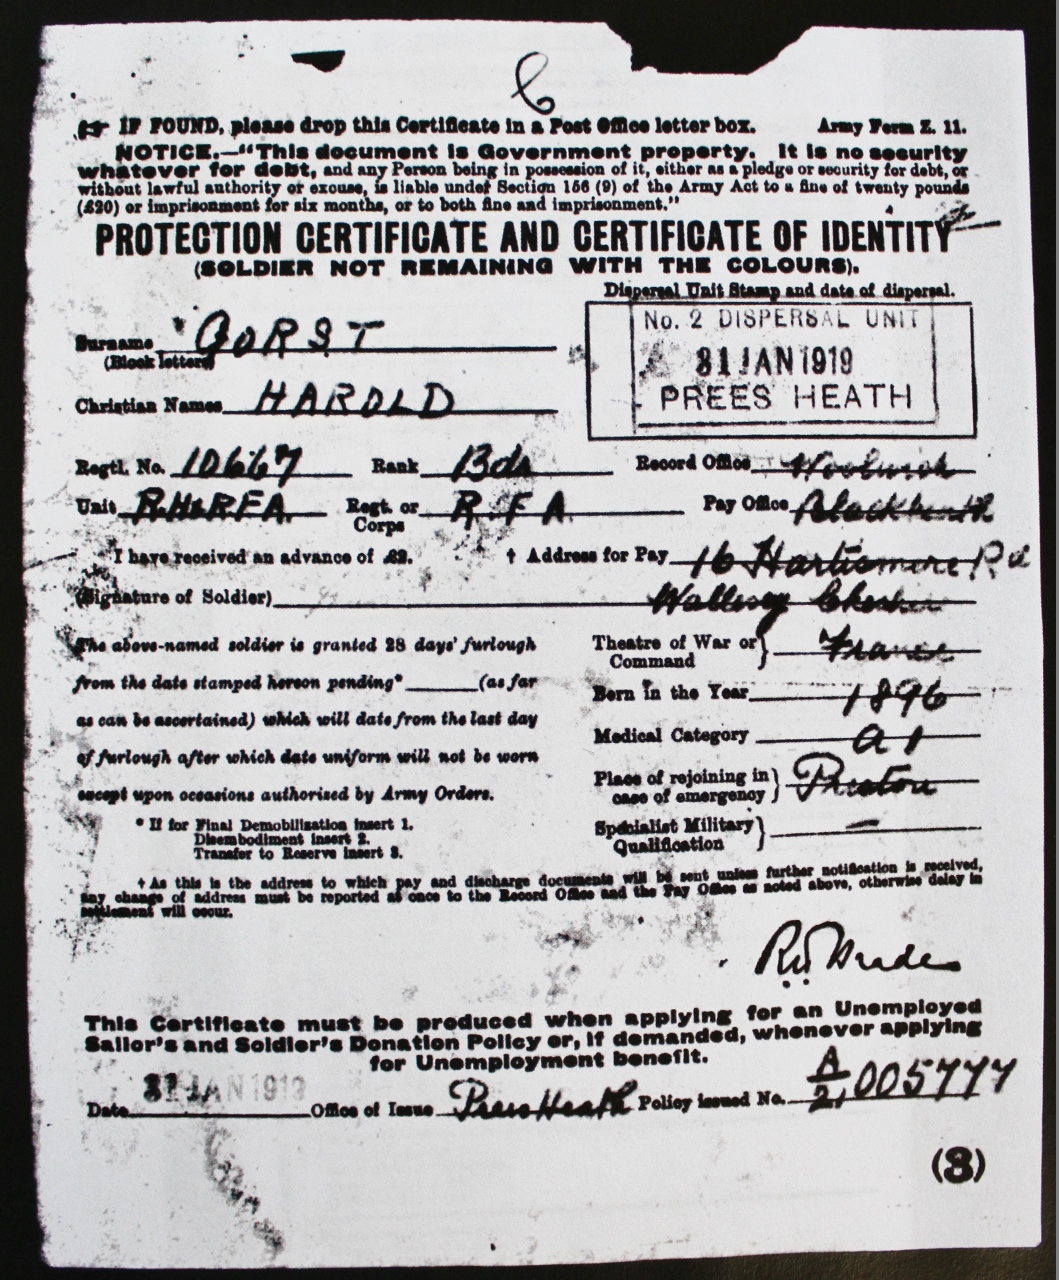 6
☞ IF FOUND, please drop this Certificate in a Post Office letter box. Army Form Z. 11.
NOTICE.—"This document is Government property. It is no security
whatever for debt, and any Person being in possession of it, either as a pledge or security for debt, or
without lawful authority or excuse, is liable under Section 156 (9) of the Army Act to a fine of twenty pounds
(£20) or imprisonment for six months, or to both fine and imprisonment."
PROTECTION CERTIFICATE AND CERTIFICATE OF IDENTITY
(SOLDIER NOT REMAINING WITH THE COLOURS).
Dispersal Unit Stamp and date of dispersal.
No. 2 DISPERSAL UNIT
31 JAN 1919
PREES HEATH
Surname GORST
(Block letters)
Christian Names HAROLD
Regtl. No. 10667 Rank Bdr Record Office Woolwich
Unit RH&RFA. Regt. or Corps R.F.A. Pay Office Blackheath
I have received an advance of £2. † Address for Pay 16 Hartismere Rd
(Signature of Soldier) Wallasey Cheshire
The above-named soldier is granted 28 days' furlough
from the date stamped hereon pending* (as far
as can be ascertained) which will date from the last day
of furlough after which date uniform will not be worn
except upon occasions authorised by Army Orders.
* If for Final Demobilization insert 1.
Disembodiment insert 2.
Transfer to Reserve insert 3.
Theatre of War or Command } France
Born in the Year 1896
Medical Category A1
Place of rejoining in case of emergency } Preston
Specialist Military Qualification } —
† As this is the address to which pay and discharge documents will be sent unless further notification is received,
any change of address must be reported at once to the Record Office and the Pay Office as noted above, otherwise delay in
settlement will occur.
This Certificate must be produced when applying for an Unemployed
Sailor's and Soldier's Donation Policy or, if demanded, whenever applying
for Unemployment benefit.
Date 31 JAN 1919 Office of Issue Prees Heath Policy issued No. A/2, 005777
(3)